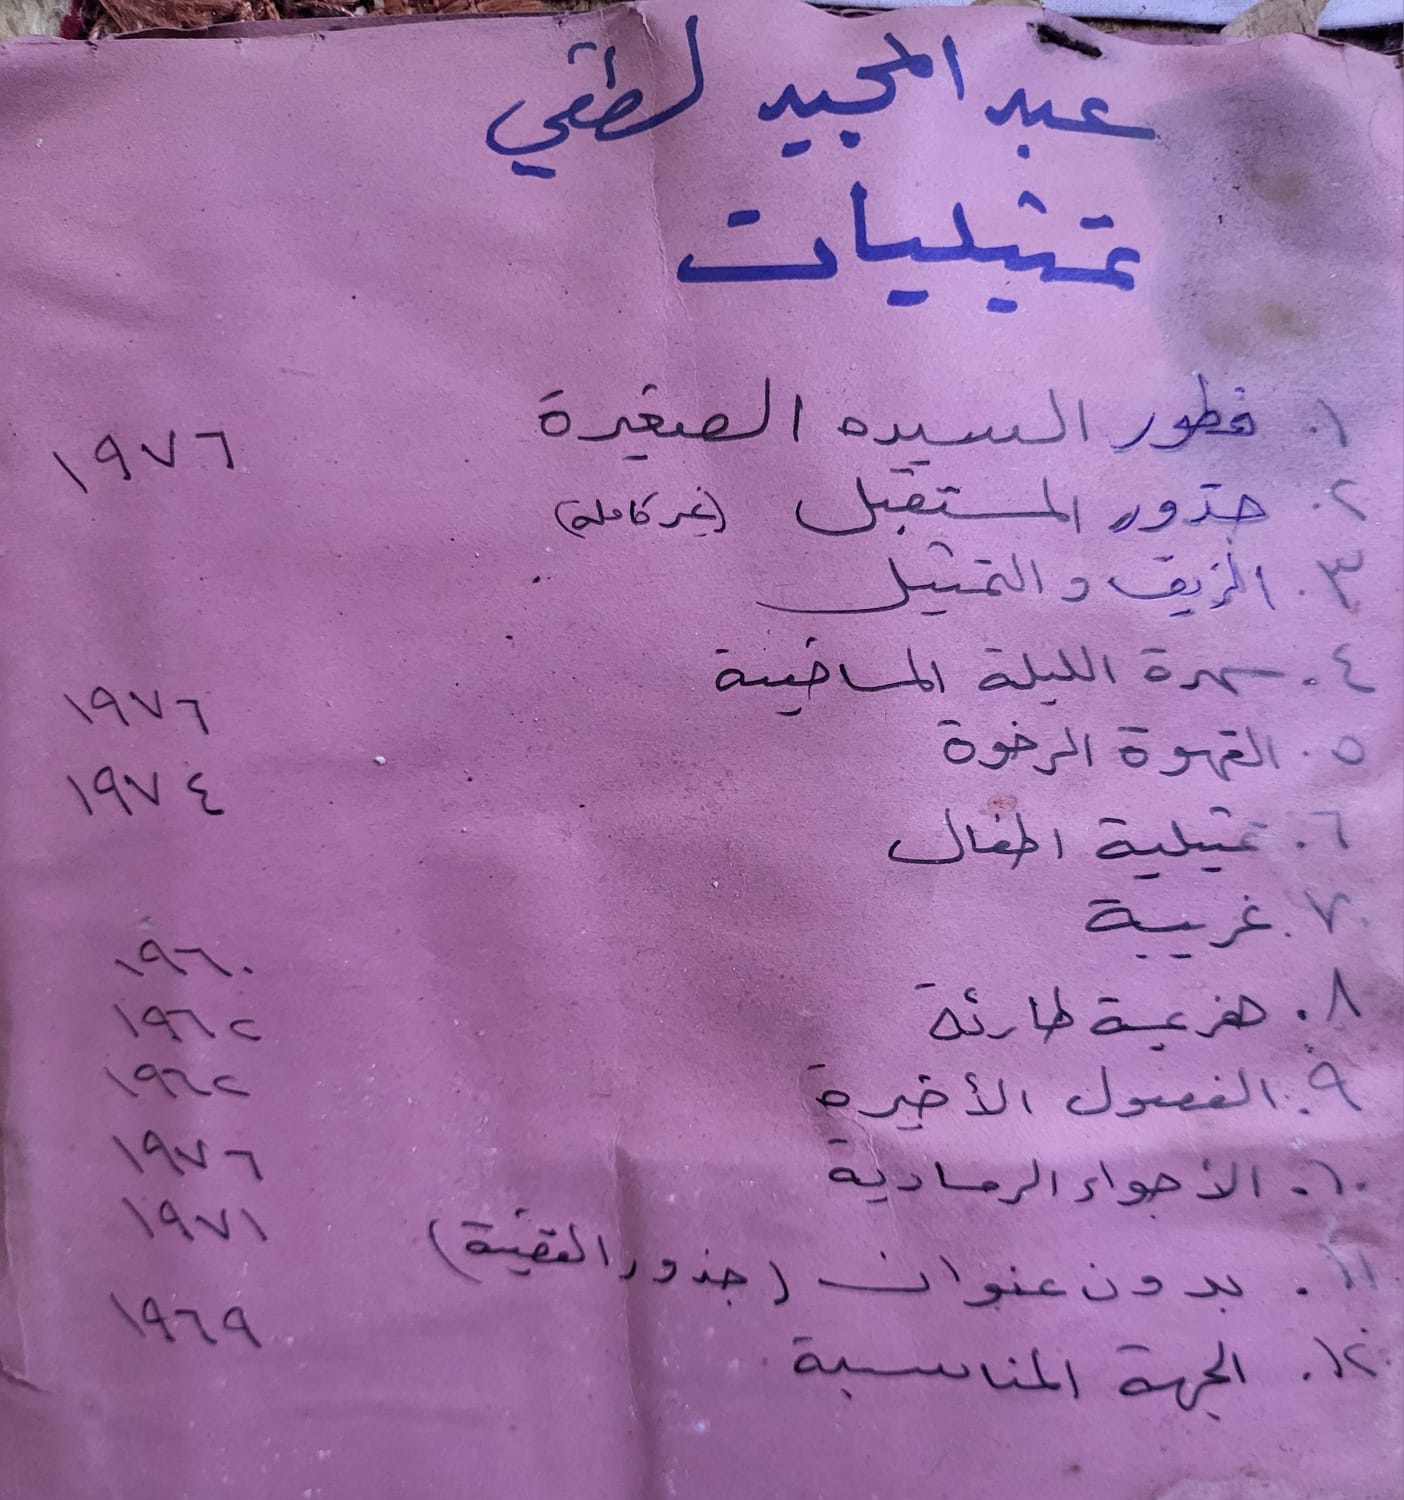 عبد المجيد لطفي
تمثيليات
١. فطور السيده الصغيرة ١٩٧٦
٢. جذور المستقبل (غير كاملة)
٣. الزيف والتمثيل
٤. سهرة الليلة الماضية ١٩٧٦
٥. القهوة الرخوة ١٩٧٤
٦. تمثيلية اطفال
٧. غريبة ١٩٦٠
٨. طارئة ١٩٦٢
٩. الفصول الأخيرة ١٩٦٢
١٠. الأجواء الرمادية ١٩٧٦
١١. بدون عنوان (جذور القضية) ١٩٧١
١٢. الجهة المناسبة ١٩٦٩